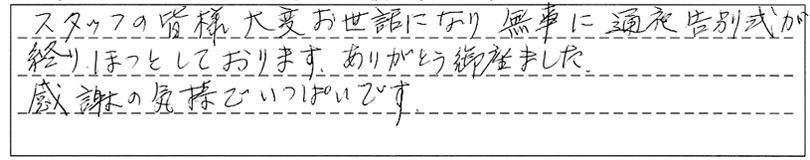 スタッフの皆様 大変お世話になり 無事に 通夜告別式が
終り、ほっとしております。ありがとう御座ました。
感謝の気持でいっぱいです。